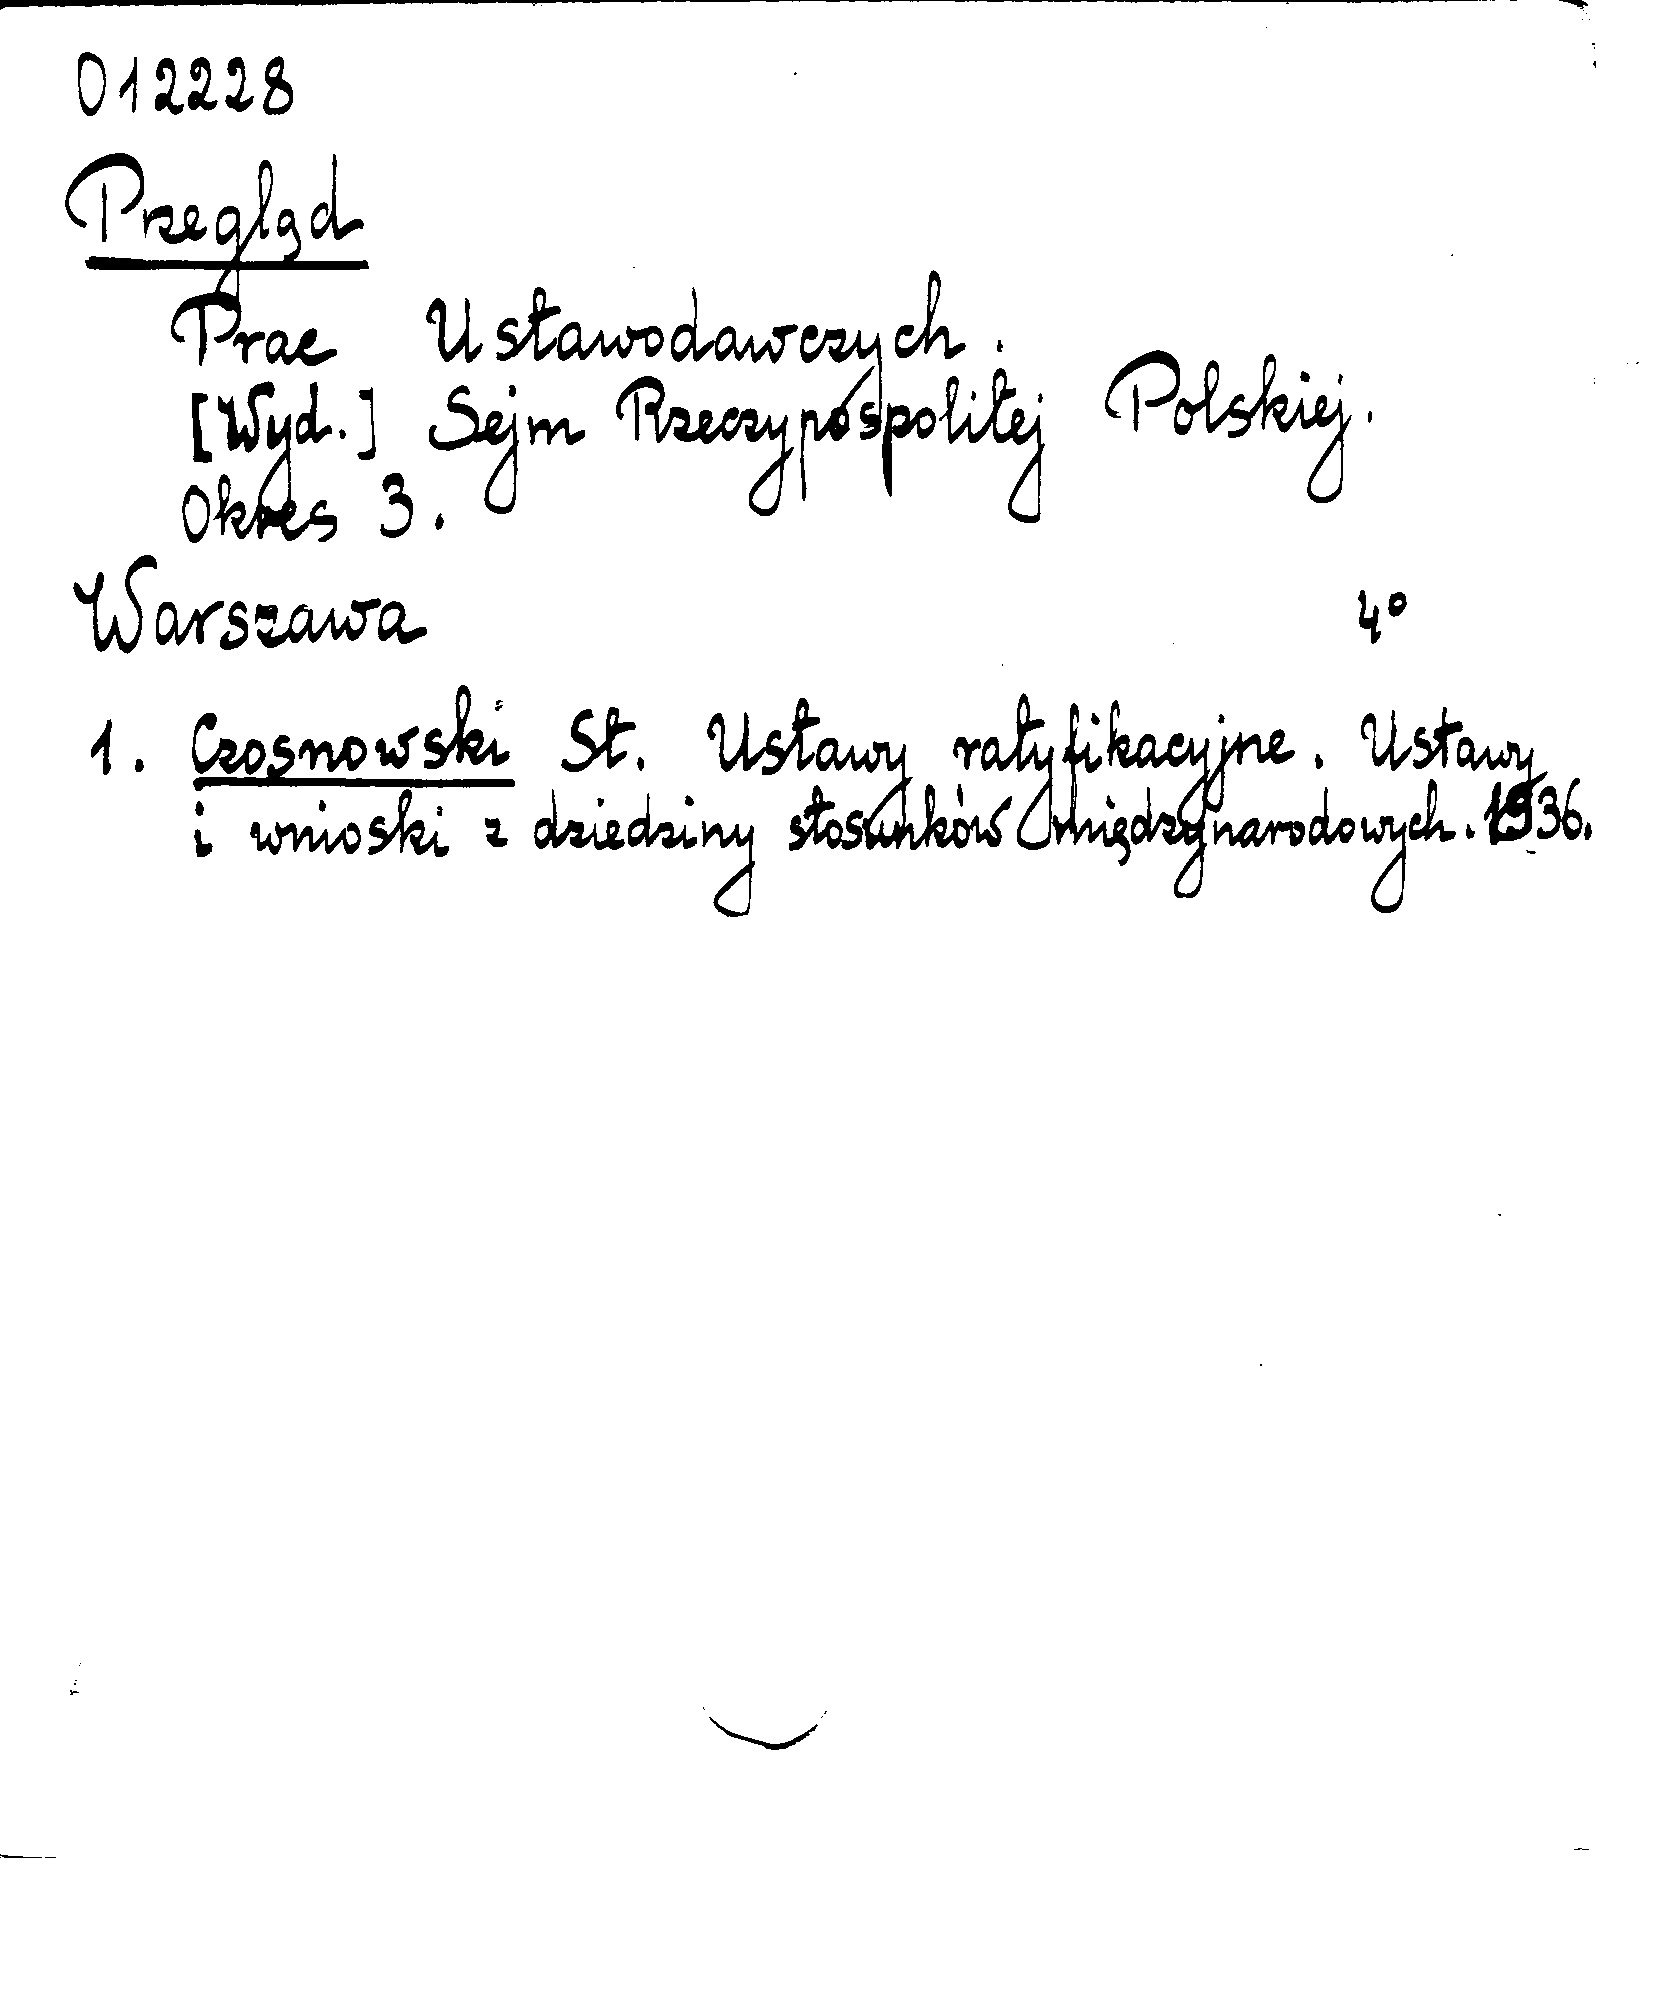 012228
Przegląd
Prac Ustawodawczych.
[Wyd.] Sejm Rzeczypospolitej Polskiej.
Okres 3.
Warszawa 4°
1. Czosnowski St. Ustawy ratyfikacyjne. Ustawy
i wnioski z dziedziny stosunków międzynarodowych. 1936.